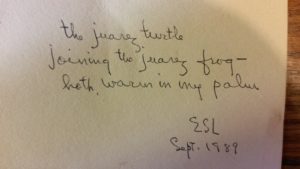 the juarez turtle
joining the juarez frog—
both warm in my palm
ESL
Sept. 1989